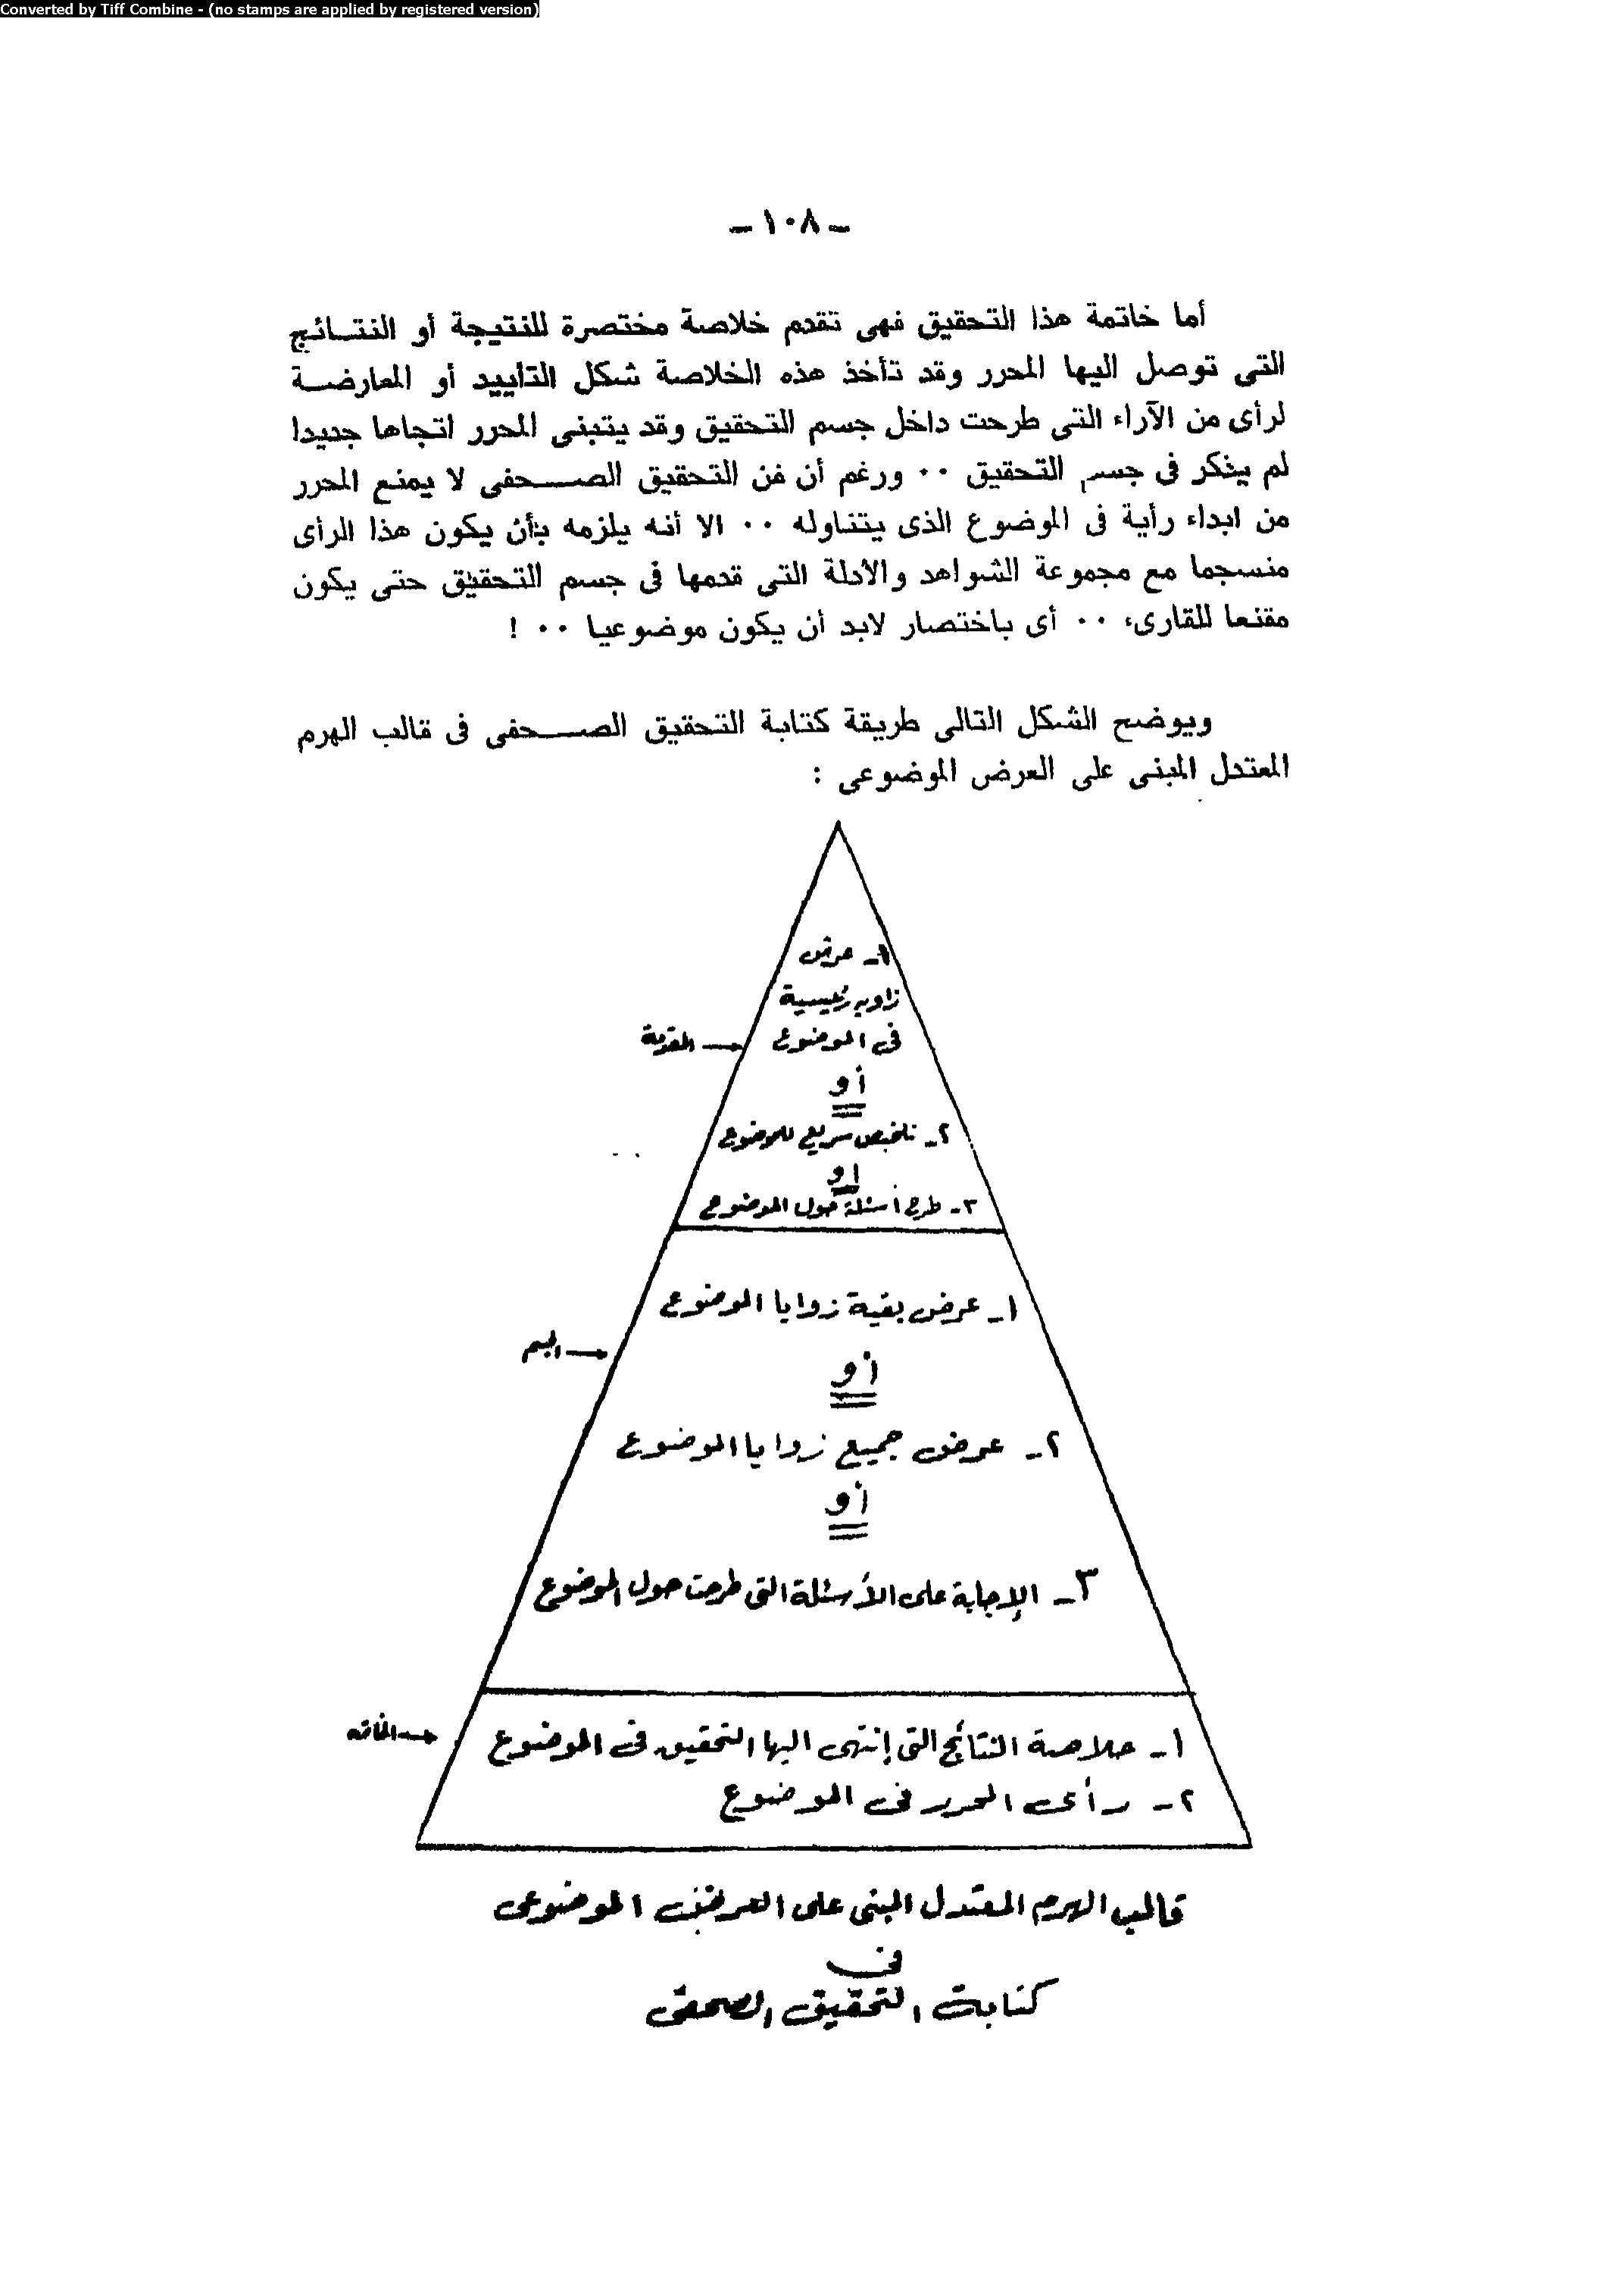 Converted by Tiff Combine - (no stamps are applied by registered version)
ـ ١٠٨ ـ
أما خاتمة هذا التحقيق فهى تقدم خلاصة مختصرة للنتيجة أو النتـــائج
التى توصل اليها المحرر وقد تأخذ هذه الخلاصة شكل التأييد أو المعارضــة
لرأى من الآراء التى طرحت داخل جسم التحقيق وقد يتبنى المحرر اتجاها جديدا
لم يذكر فى جسم التحقيق ٠٠ ورغم أن فن التحقيق الصـــحفى لا يمنع المحرر
من ابداء رأية فى الموضوع الذى يتناوله ٠٠ الا أنه يلزمه بأن يكون هذا الرأى
منسجما مع مجموعة الشواهد والأدلة التى قدمها فى جسم التحقيق حتى يكون
مقنعا للقارىء ٠٠ أى باختصار لابد أن يكون موضوعيا ٠٠ !
ويوضح الشكل التالى طريقة كتابة التحقيق الصـــحفى فى قالب الهرم
المعتدل المبنى على العرض الموضوعى :
١ـ عرض
زاويه رئيسية
فى الموضوع
المقدمة
أو
٢ـ تلخيص سريع للموضوع
أو
٣ـ طرح أسئلة حول الموضوع
١ـ عرض بقية زوايا الموضوع
الجسم
أو
٢ـ عرض جميع زوايا الموضوع
أو
٣ـ الإجابة على الأسئلة التى طرحت حول الموضوع
الخاتمه
١ـ خلاصة النتائج التى إنتهى اليها التحقيق فى الموضوع
٢ـ رأى المحرر فى الموضوع
قالب الهرم المعتدل المبنى على العرض الموضوعى
فى
كتابة التحقيق الصحفى